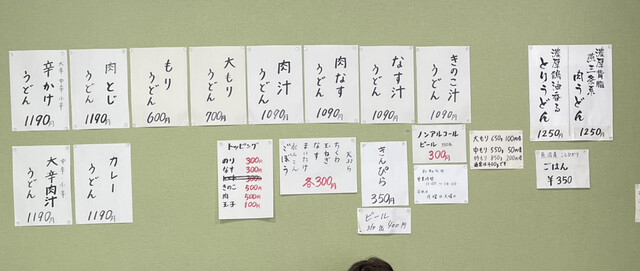 大辛 中辛 小辛
辛かけ
うどん
1190円
肉とじ
うどん
1190円
もり
うどん
600円
大もり
うどん
700円
肉汁
うどん
1090円
肉なす
うどん
1090円
なす汁
うどん
1090円
きのこ汁
うどん
1090円
濃厚鶏油香る
とりうどん
1250円
濃厚背脂
燕三条系
肉うどん
1250円
中辛 小辛
大辛肉汁
うどん
1190円
カレー
うどん
1190円
トッピング
のり 300円
なす 300円
きのこ 500円
肉 500円
玉子 100円
天ぷら
ちくわ
玉ねぎ
なす
まいたけ
れんこん
ごぼう
各300円
きんぴら
350円
ビール
ノンアルコール
ビール
300円
営業時間
大もり 650g 100円増
中もり 550g 50円増
特もり 850g 200円増
魚沼産 こしひかり
ごはん
¥350